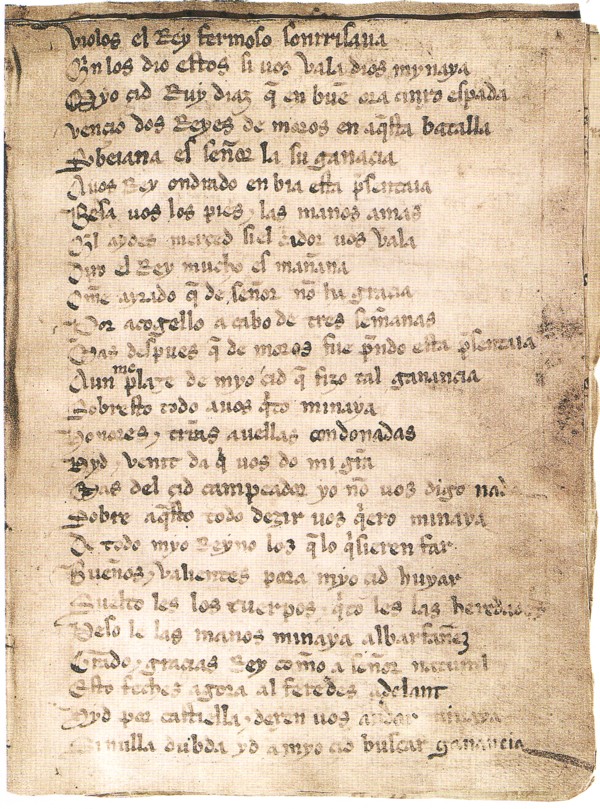 violos el Rey fermoso sonrrisaua
Quin los dio estos si uos vala dios mynaya
Myo çid Ruy diaz q̃ en buẽ ora cinxo espada
vençio dos Reyes de moros en aq̃sta batalla
Sobeiana es señor la su ganãçia
A uos Rey ondrado enbia esta p̃sentaia
Besa uos los pies ⁊ las manos amas
Quel aydes merçed si el c̃ador uos vala
Dixo el Rey mucho es mañana
Om̃e ayrado q̃ de señor nõ ha gracia
Por acogello a cabo de tres semanas
Mas despues q̃ de moros fue p̃ndo esta p̃sentaia
Aun me plaze de myo çid q̃ fizo tal ganançia
Sobresto todo auos q̃to minaya
Honores ⁊ tr̃ras auellas condonadas
Hyd ⁊ venit da q̃ uos do mi gr̃a
Mas del çid campeador yo nõ uos digo nada
Sobre aq̃sto todo dezir uos q̃ero minaya
De todo myo Reyno los q̃ lo q̃sieren far
Buenos ⁊ valientes pora myo çid huyar
Suelto les los cuerpos ⁊ q̃to les las heredades
Beso le las manos minaya albarfanez
Grado ⁊ graçias Rey commo a señor natural
Esto feches agora al feredes adelant
Hyd por castiella ⁊ dexen uos andar minaya
Si nulla dubda yd a myo çid buscar ganançia